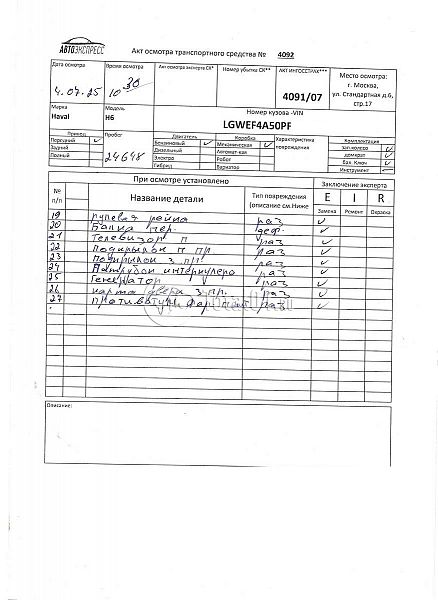 АВТОЭКСПРЕСС
Акт осмотра транспортного средства № 4092
Дата осмотра Время осмотра Акт осмотра эксперта СК* Номер убытка СК** АКТ ИНГОССТРАХ*** Место осмотра:
г. Москва,
ул. Стандартная д.6,
стр.17
4.07.25 10 30 4091/07
Марка Модель Номер кузова -VIN
Haval H6 LGWEF4A50PF
Привод Пробег Двигатель Коробка Характеристика повреждения Комплектация
Передний ✓ Бензиновый ✓ Механическая ✓ зап.колесо ✓
Задний Дизельный Автомат-кая домкрат ✓
Полный 24648 Электро Робот бал. Ключ ✓
Гибрид Вариатор Инструмент -
При осмотре установлено Заключение эксперта
№ п/п Название детали Тип повреждения (описание см.Ниже E I R
Замена Ремонт Окраска
19 рулевая рейка раз ✓
20 Балка пер. деф. ✓
21 Телевизор п раз ✓
22 Подкрылок п пр. раз ✓
23 Подкрылок з пр. раз ✓
24 Патрубок интеркулера раз ✓
25 Генератор раз ✓
26 карта двери з пр. раз ✓
27 противотум. фар раз ✓
Описание: